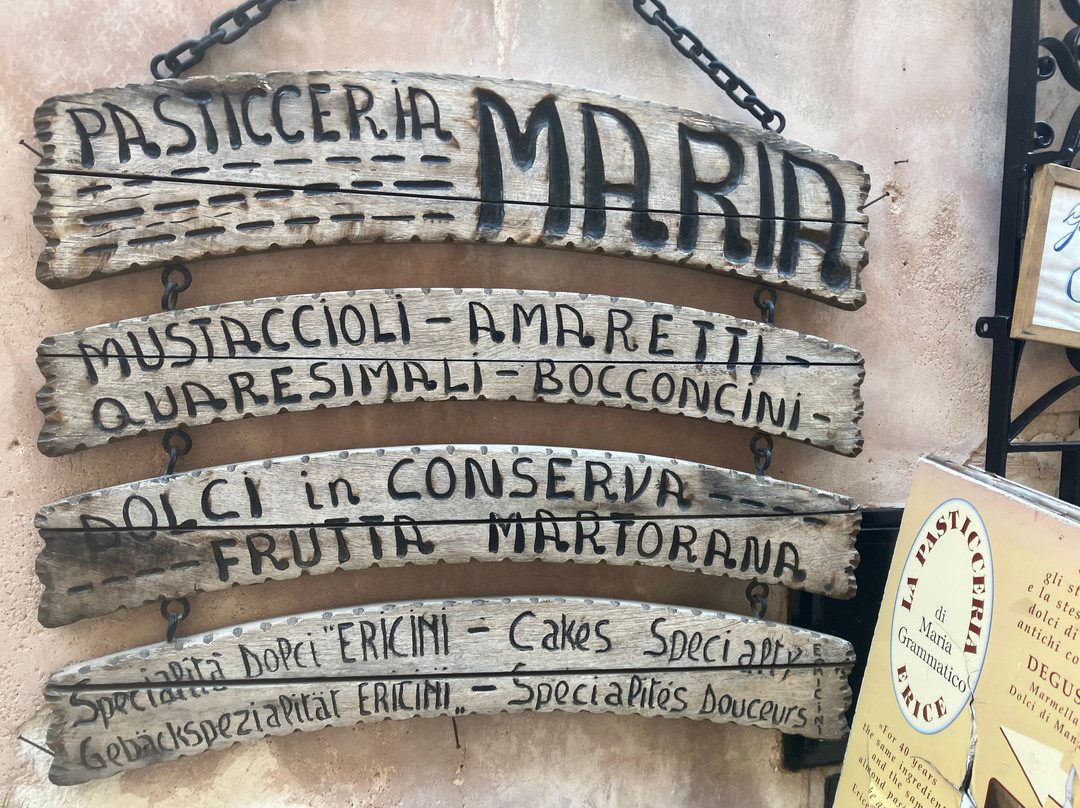 PASTICCERIA MARIA
MUSTACCIOLI - AMARETTI -
QUARESIMALI - BOCCONCINI -
DOLCI in CONSERVA
FRUTTA MARTORANA
Specialità Dolci "ERICINI - Cakes Specialty ERICINI
Gebäckspezialität ERICINI„ - Specialités Douceurs
LA PASTICCERIA
di
Maria
Grammatico
ERICE
gli st
e la stes
dolci di
antichi co
DEGUS
Marmella
Dolci di Man
«For 40 years
the same ingredien
and the sam
almond pas
Erice